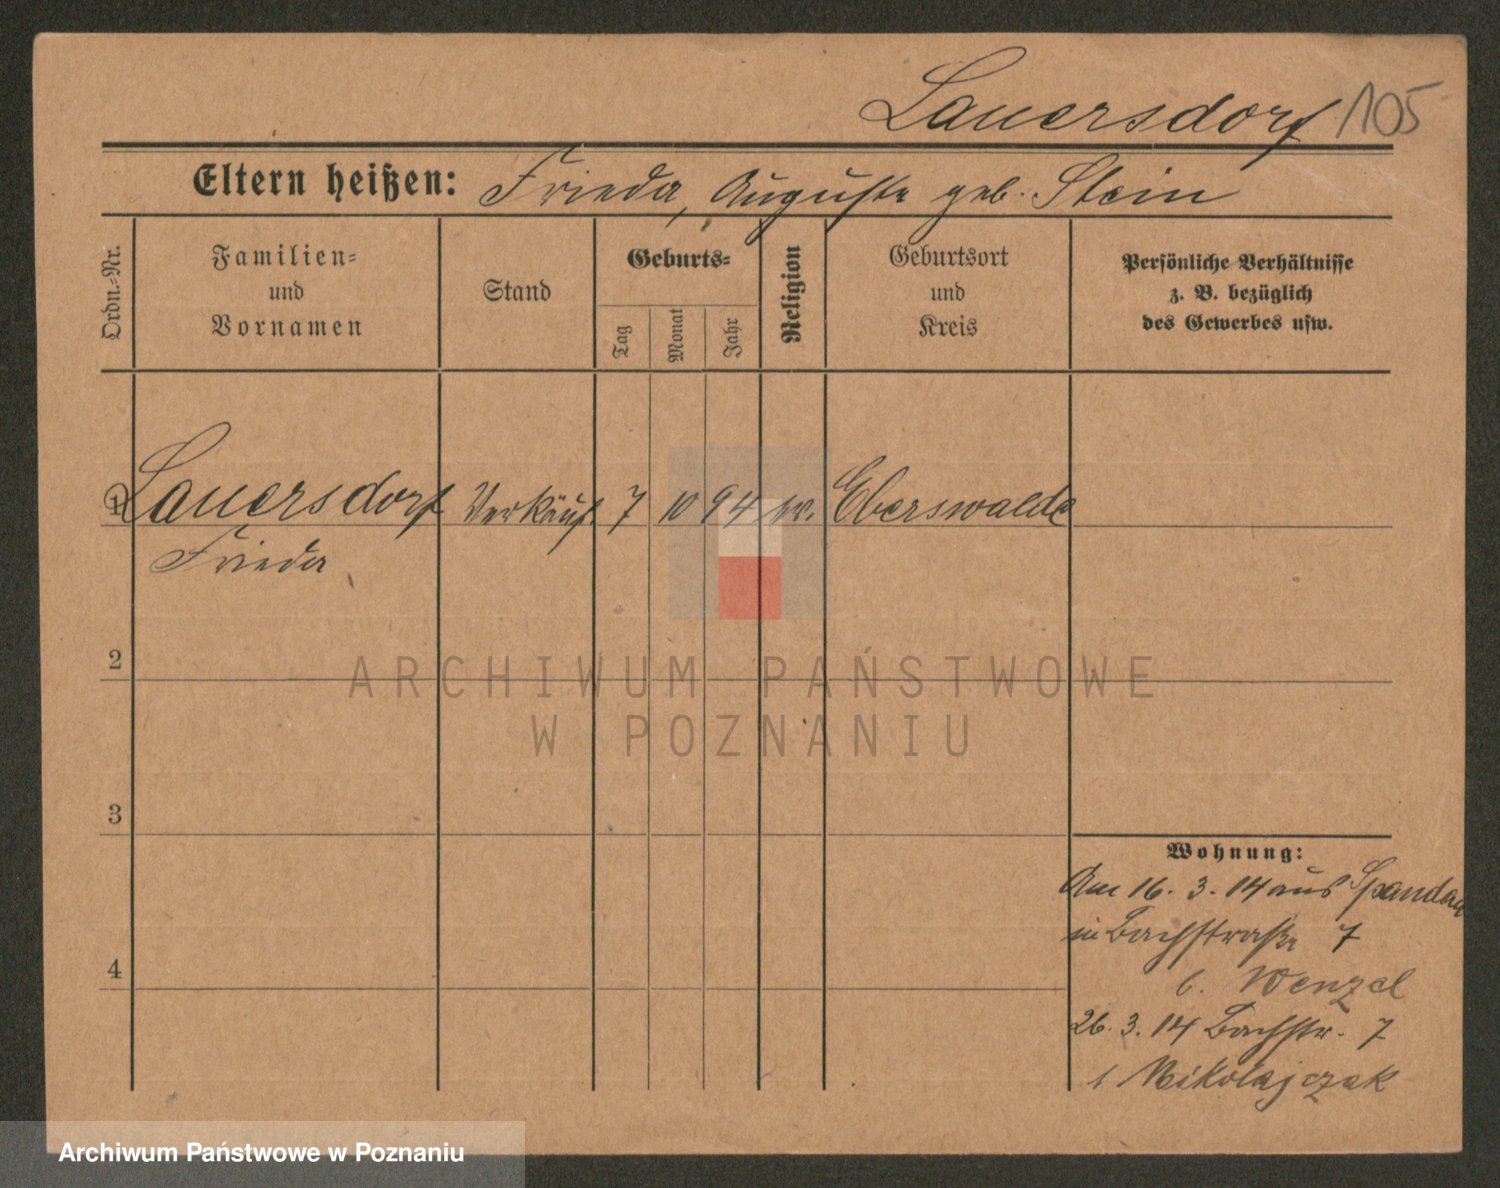 Lauersdorf 105
Eltern heißen: Frieda, Auguste geb. Stein
Ordn.-Nr.
Familien-
und
Vornamen
Stand
Geburts-
Tag
Monat
Jahr
Religion
Geburtsort
und
Kreis
Persönliche Verhältnisse
z. B. bezüglich
des Gewerbes usw.
1 Lauersdorf Verkäuf. 7 10 94 ev. Eberswalde
Frieda
2
3
4
Wohnung:
Am 16. 3. 14 aus Spandau
in Bachstraße 7
b. Wenzel
26. 3. 14 Bachstr. 7
Nikolajczak
ARCHIWUM PAŃSTWOWE
W POZNANIU
Archiwum Państwowe w Poznaniu